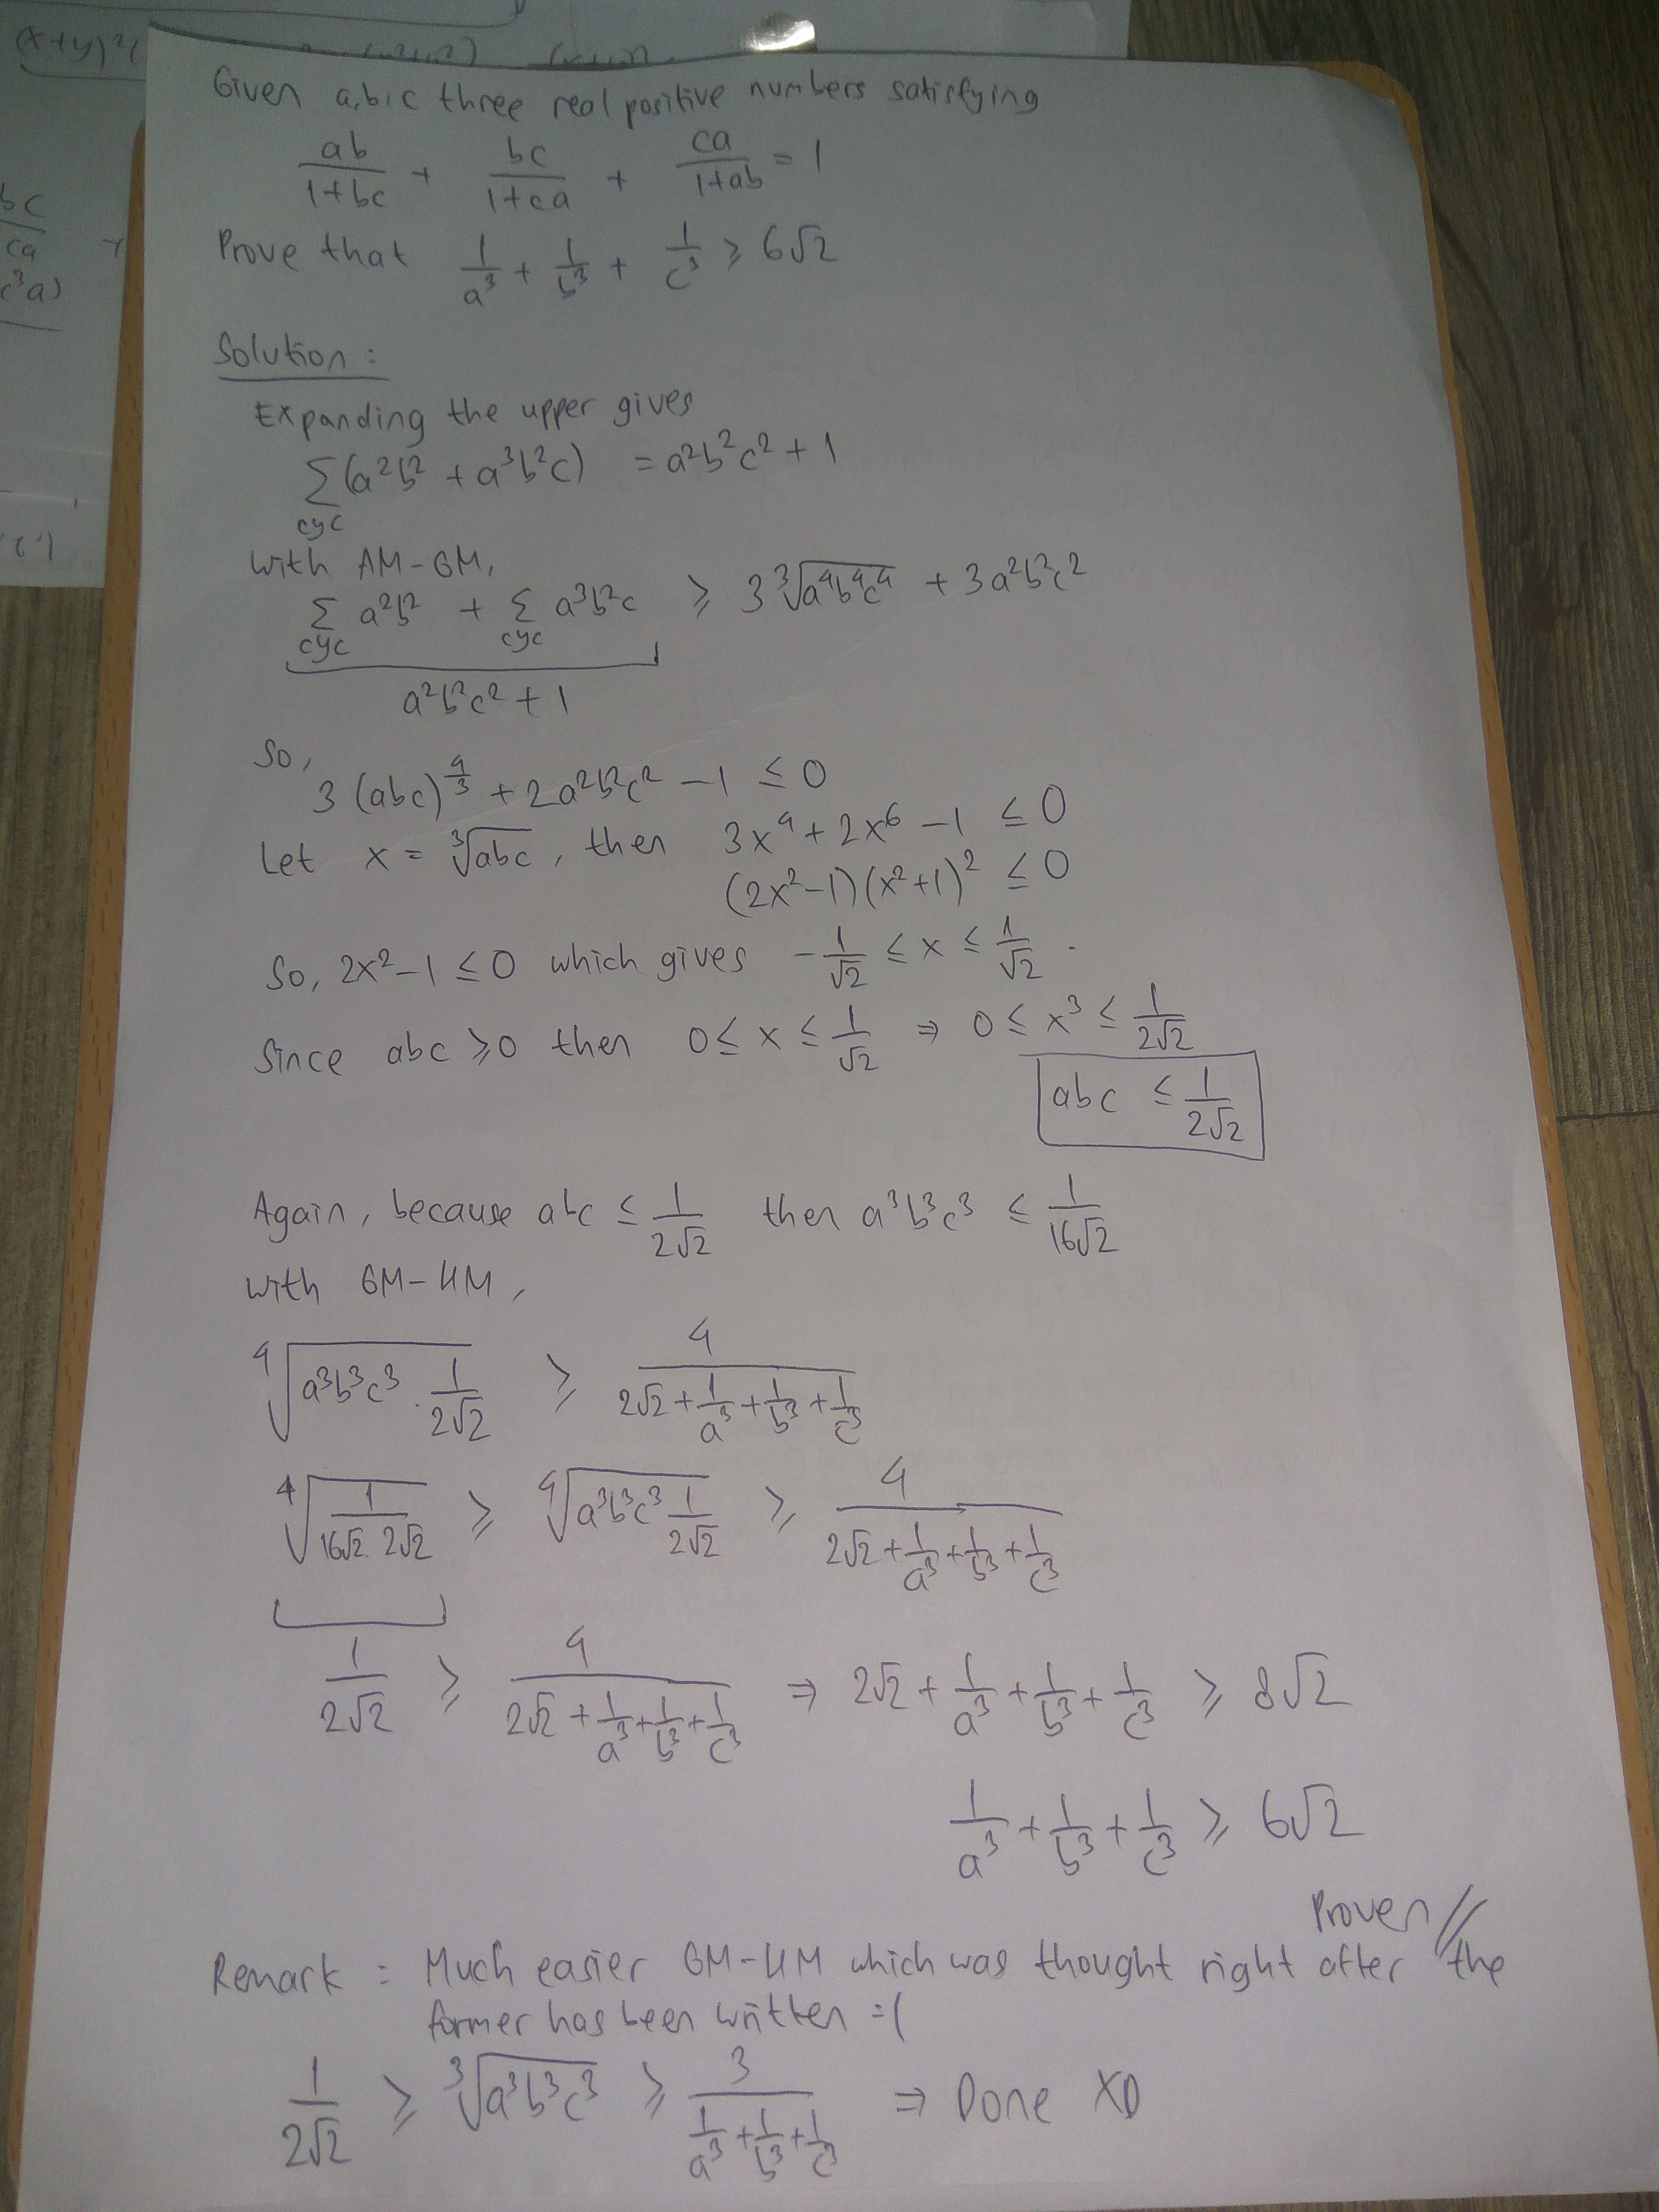 (x+y)²(
bc
ca
c³a)
Given a,b,c three real positive numbers satisfying
ab/(1+bc) + bc/(1+ca) + ca/(1+ab) = 1
Prove that 1/a³ + 1/b³ + 1/c³ ≥ 6√2
Solution :
Expanding the upper gives
∑cyc (a²b² + a³b²c) = a²b²c² + 1
With AM-GM,
∑cyc a²b² + ∑cyc a³b²c ≥ 3∛(a⁴b⁴c⁴) + 3a²b²c²
a²b²c² + 1
So,
3(abc)^(4/3) + 2a²b²c² - 1 ≤ 0
Let x = ∛(abc), then 3x⁴ + 2x⁶ - 1 ≤ 0
(2x²-1)(x²+1)² ≤ 0
So, 2x²-1 ≤ 0 which gives -1/√2 ≤ x ≤ 1/√2.
Since abc ≥ 0 then 0 ≤ x ≤ 1/√2 ⇒ 0 ≤ x³ ≤ 1/(2√2)
abc ≤ 1/(2√2)
Again, because abc ≤ 1/(2√2) then a³b³c³ ≤ 1/(16√2)
With GM-HM,
∜(a³b³c³ . 1/(2√2)) ≥ 4/(2√2 + 1/a³ + 1/b³ + 1/c³)
∜(1/(16√2 . 2√2)) ≥ ∜(a³b³c³ 1/(2√2)) ≥ 4/(2√2 + 1/a³ + 1/b³ + 1/c³)
1/(2√2) ≥ 4/(2√2 + 1/a³ + 1/b³ + 1/c³) ⇒ 2√2 + 1/a³ + 1/b³ + 1/c³ ≥ 8√2
1/a³ + 1/b³ + 1/c³ ≥ 6√2
Proven //
Remark : Much easier GM-HM which was thought right after the
former has been written =(
1/(2√2) ≥ ∛(a³b³c³) ≥ 3/(1/a³ + 1/b³ + 1/c³) ⇒ Done XD